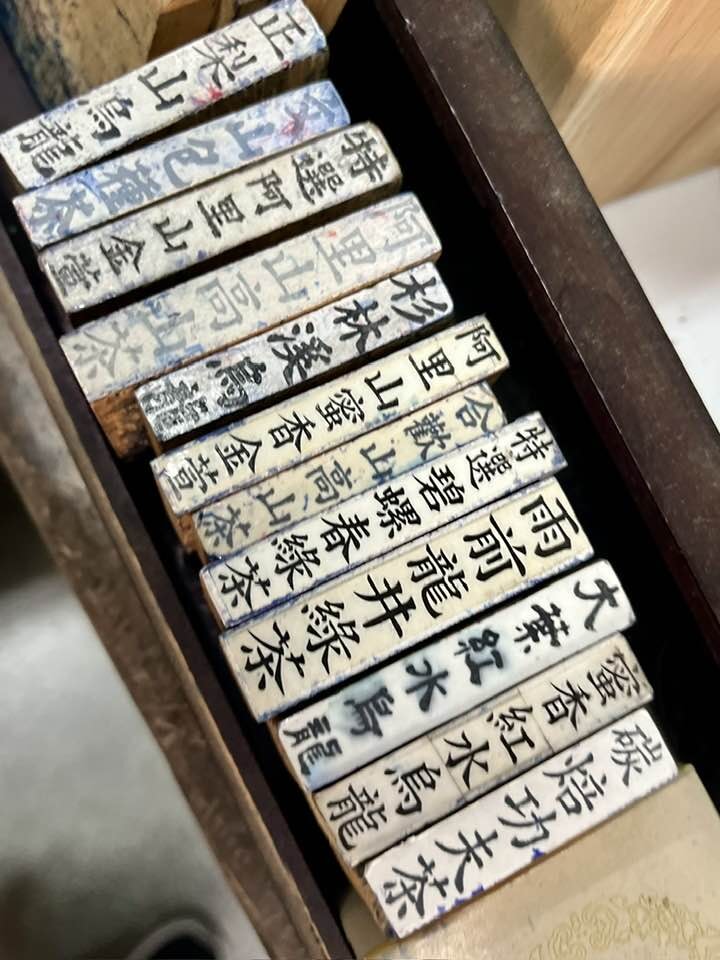 正梨山烏龍
山包種茶
特選阿里山金萱
阿里山高山茶
杉林溪烏龍
阿里山蜜香金萱
合歡山高山茶
特選碧螺春綠茶
雨前龍井綠茶
大葉紅水烏龍
蜜香紅水烏龍
碳焙功夫茶